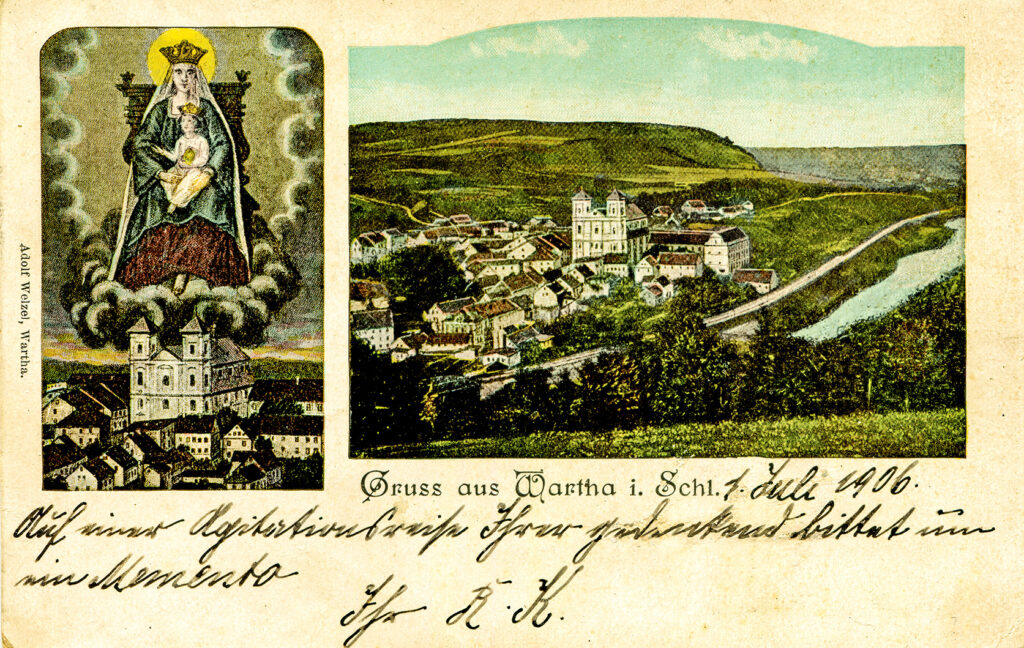 Adolf Welzel, Wartha.
Gruss aus Wartha i. Schl. 1. Juli 1906.
Auf einer Agitationsreise Ihrer gedenkend bittet um
ein Memento
Ihr K. K.